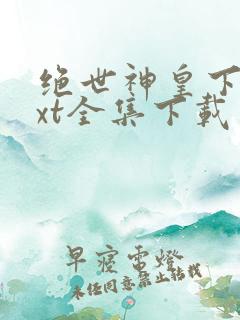 绝世神皇下
xt全集下载
早寝雷燈
未经同意禁止转载